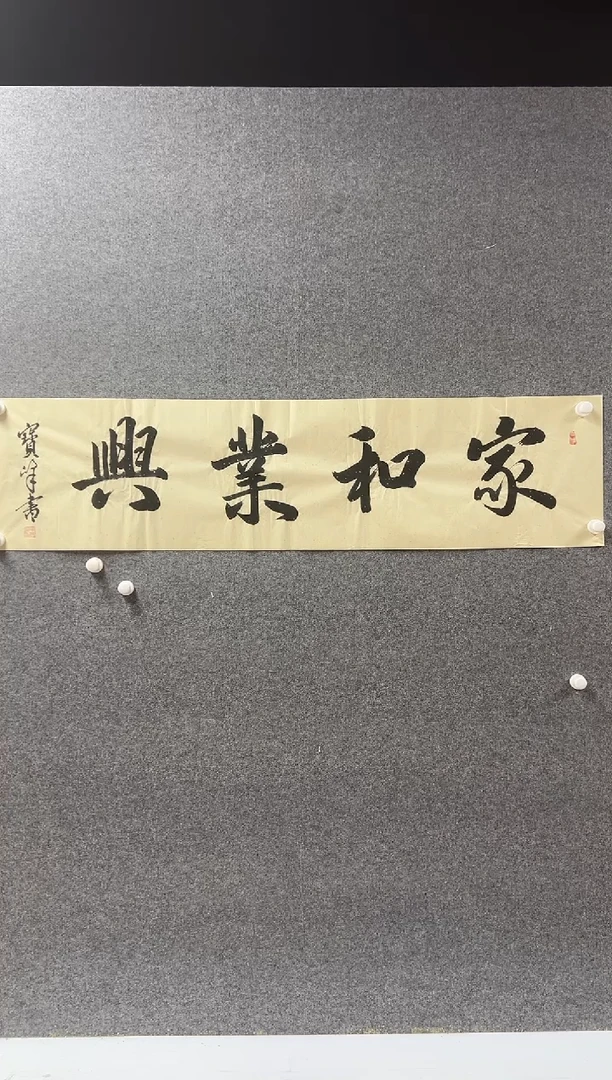 家和業興
寶峰書